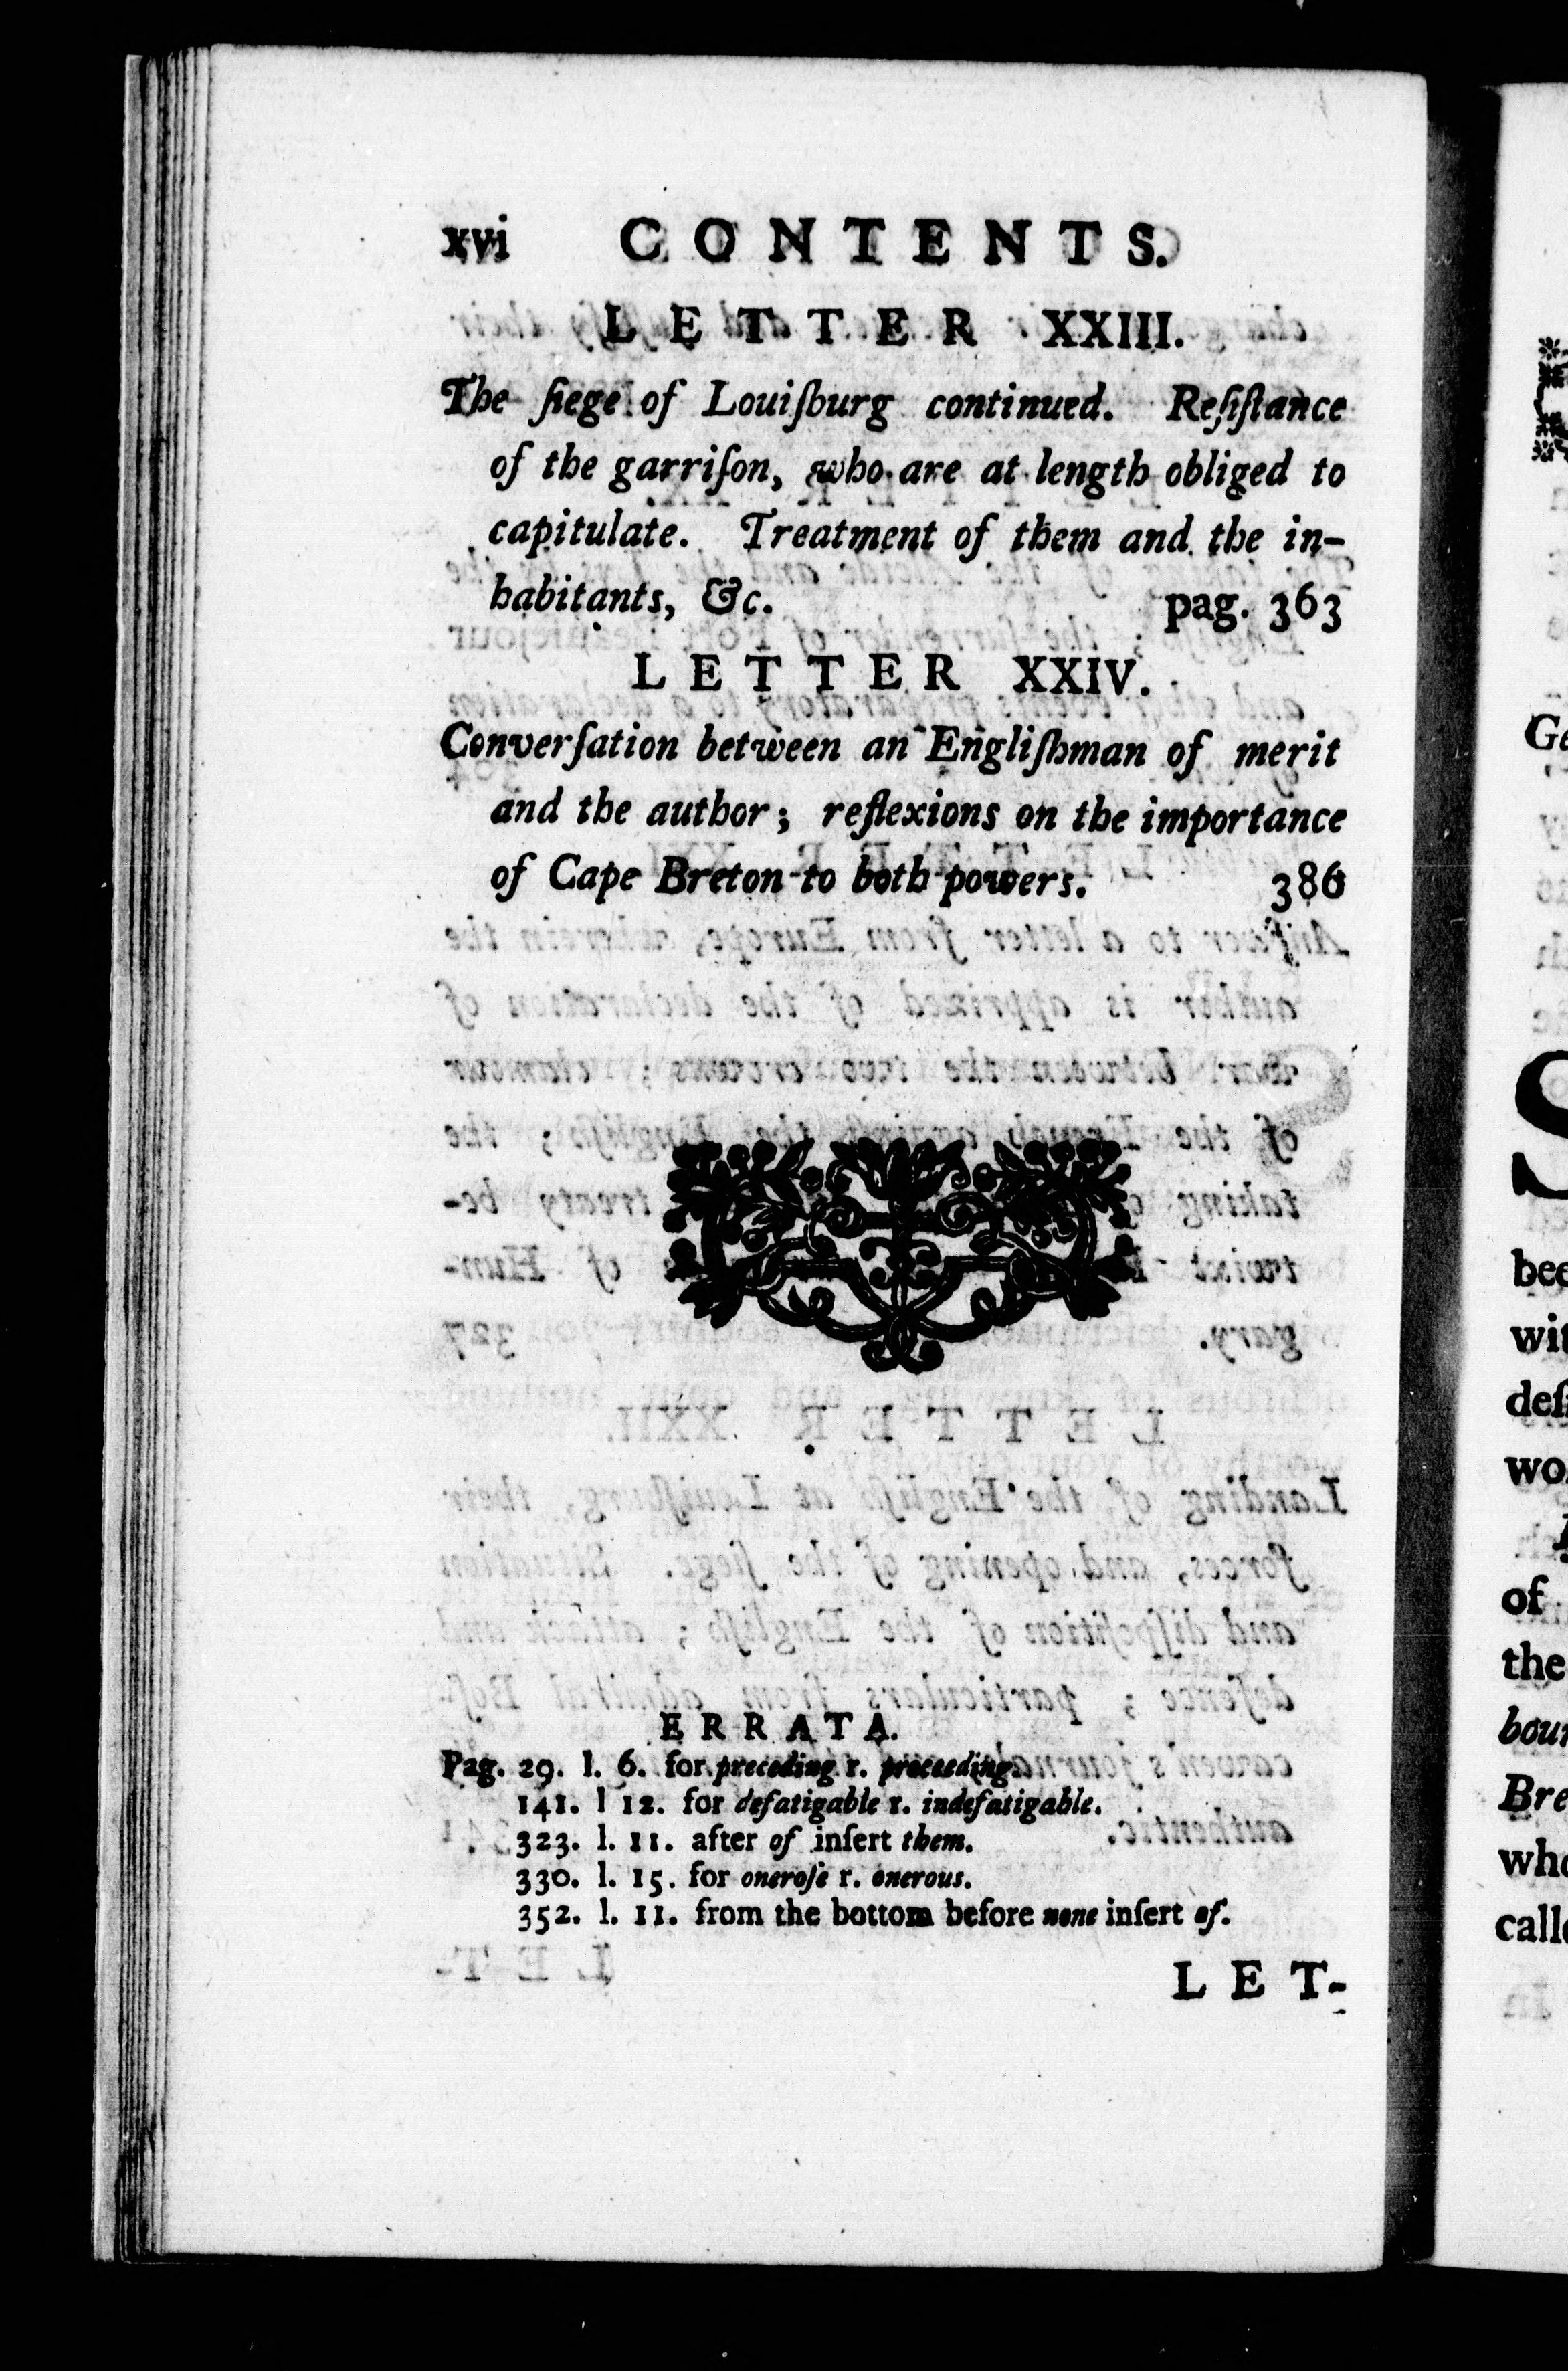 xvi CONTENTS.
LETTER XXIII.
The ſiege of Louiſburg continued. Reſiſtance
of the garriſon, who are at length obliged to
capitulate. Treatment of them and the in-
habitants, &c. pag. 363
LETTER XXIV.
Converſation between an Engliſhman of merit
and the author; reflexions on the importance
of Cape Breton to both powers. 386
ERRATA.
Pag. 29. l. 6. for preceding r. proceeding.
141. l 12. for defatigable r. indefatigable.
323. l. 11. after of inſert them.
330. l. 15. for oneroſe r. onerous.
352. l. 11. from the bottom before none inſert of.
LET-